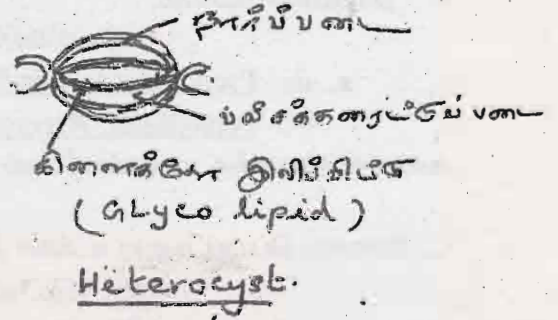 நார்ப்படை
பலிசக்கரைட்டுப் படை
கிளைக்கோ இலிப்பிட்டு
( GLyco lipid )
Heterocyst.